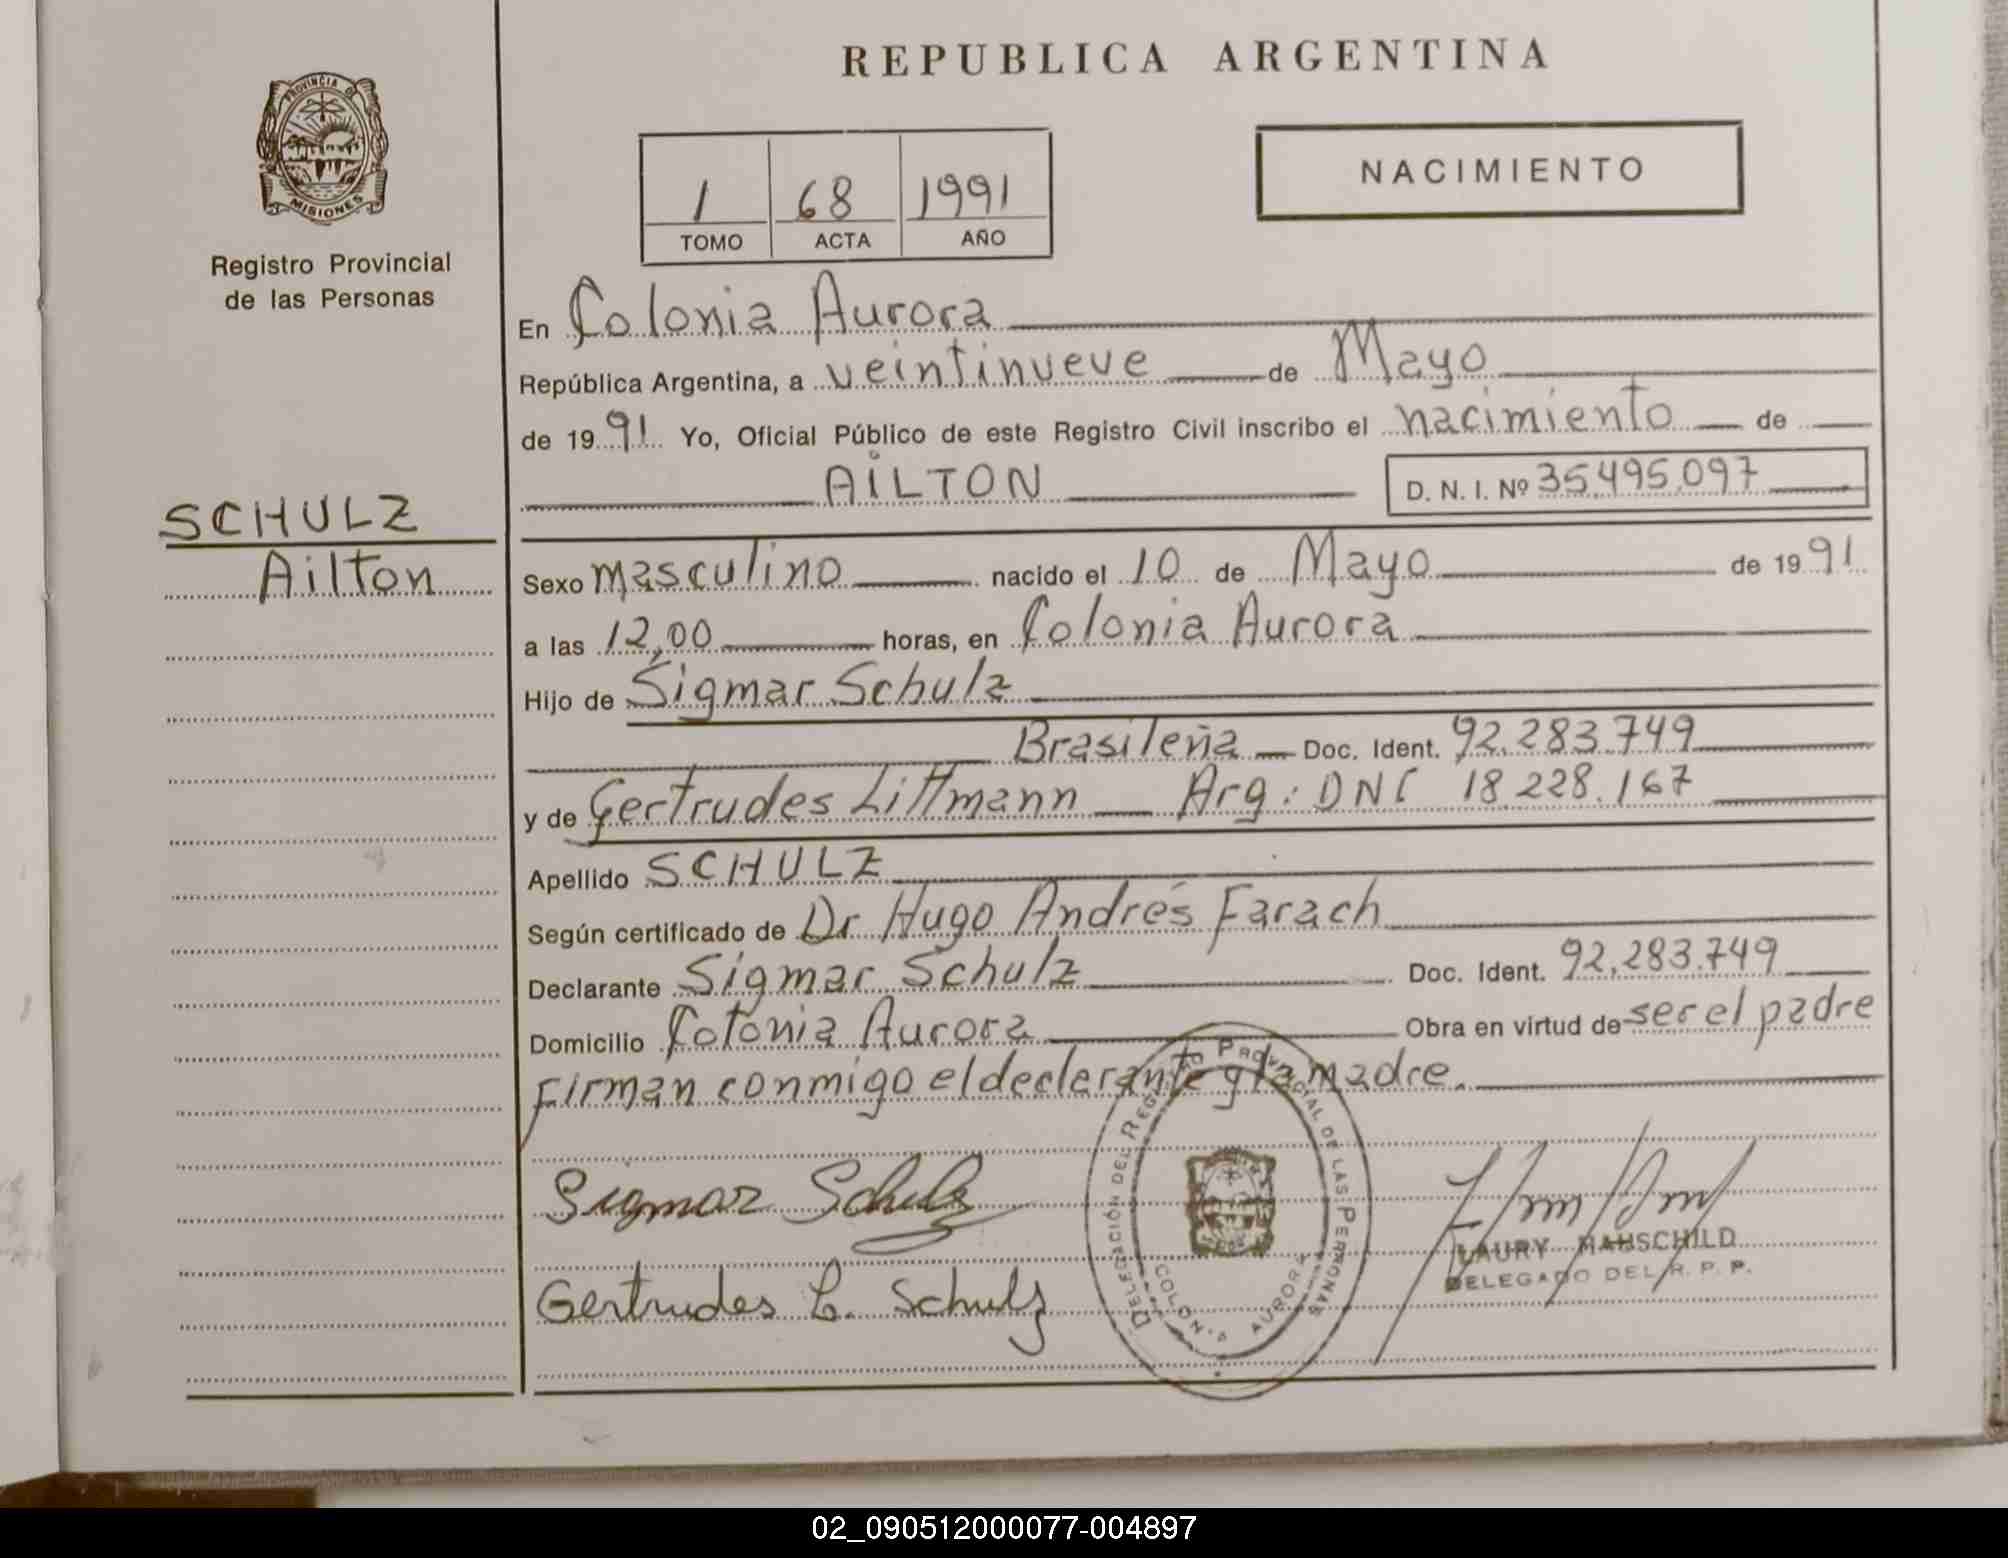 REPUBLICA ARGENTINA
PROVINCIA DE
MISIONES
Registro Provincial
de las Personas
1 68 1991
TOMO ACTA AÑO
NACIMIENTO
En Colonia Aurora
República Argentina, a veintinueve de Mayo
de 1991 Yo, Oficial Público de este Registro Civil inscribo el nacimiento de
AILTON D. N. I. Nº 35.495.097
SCHULZ
Ailton
Sexo masculino nacido el 10 de Mayo de 1991
a las 12,00 horas, en Colonia Aurora
Hijo de Sigmar Schulz
Brasileña Doc. Ident. 92.283.749
y de Gertrudes Littmann Arg: DNI 18.228.167
Apellido SCHULZ
Según certificado de Dr Hugo Andrés Farach
Declarante Sigmar Schulz Doc. Ident. 92,283.749
Domicilio Colonia Aurora Obra en virtud de ser el padre
Firman conmigo el declarante y la madre.
Sigmar Schulz
Gertrudes L. Schulz
DELEGACIÓN DEL REGISTRO PROVINCIAL DE LAS PERSONAS
COLONIA AURORA
LAURY HAUSCHILD
DELEGADO DEL R. P. P.
02_090512000077-004897